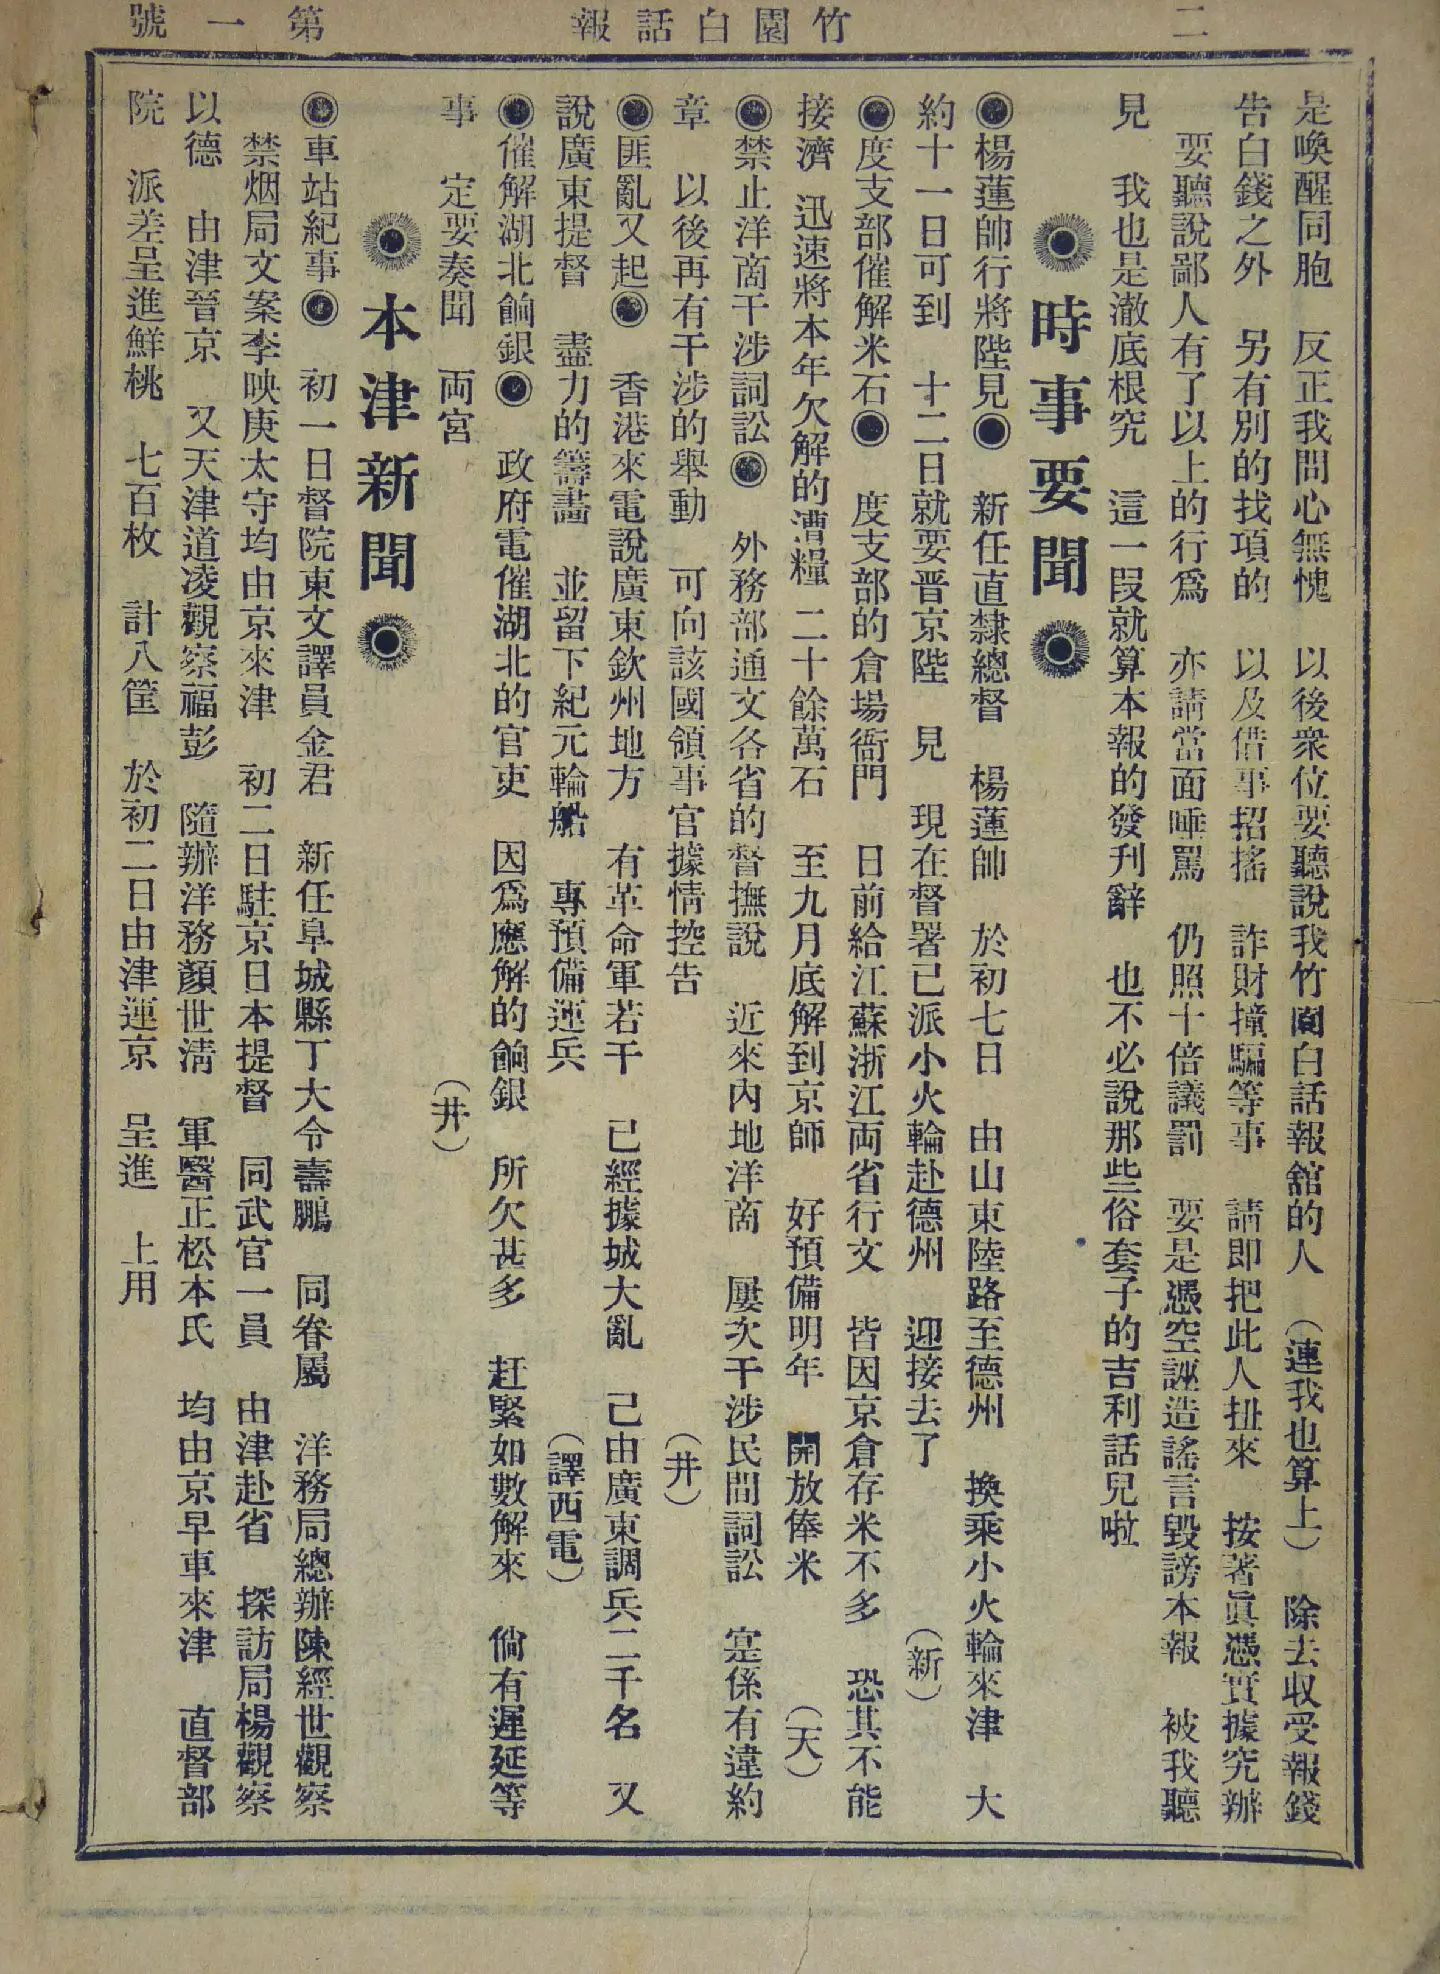 二
竹園白話報
第一號
是喚醒同胞　反正我問心無愧　以後衆位要聽說我竹園白話報舘的人　（連我也算上）　除去収受報錢
告白錢之外　另有別的找項的　以及借事招搖　詐財撞騙等事　請即把此人扭來　按著眞憑實據究辦
要聽說鄙人有了以上的行爲　亦請當面唾罵　仍照十倍議罰　要是憑空誣造謠言毀謗本報　被我聽
見　我也是澈底根究　這一段就算本報的發刋辭　也不必說那些俗套子的吉利話兒啦
時事要聞
◉楊蓮帥行將陛見◉　新任直隸總督　楊蓮帥　於初七日　由山東陸路至德州　換乘小火輪來津　大
約十一日可到　十二日就要晋京陛　見　現在督署已派小火輪赴德州　迎接去了　（新）
◉度支部催解米石◉　度支部的倉場衙門　日前給江蘇浙江両省行文　皆因京倉存米不多　恐其不能
接濟　迅速將本年欠解的漕糧　二十餘萬石　至九月底解到京師　好預備明年　開放俸米　（天）
◉禁止洋商干涉詞訟◉　外務部通文各省的督撫說　近來內地洋商　屢次干涉民間詞訟　寔係有違約
章　以後再有干涉的舉動　可向該國領事官據情控告　（井）
◉匪亂又起◉　香港來電說廣東欽州地方　有革命軍若干　已經據城大亂　已由廣東調兵二千名　又
說廣東提督　盡力的籌畵　並留下紀元輪船　專預備運兵　（譯西電）
◉催解湖北餉銀◉　政府電催湖北的官吏　因爲應解的餉銀　所欠甚多　赶緊如數解來　倘有遲延等
事　定要奏聞　両宮　（井）
本津新聞
◉車站紀事◉　初一日督院東文譯員金君　新任阜城縣丁大令壽鵬　同眷屬　洋務局總辦陳經世觀察
禁烟局文案李映庚太守均由京來津　初二日駐京日本提督　同武官一員　由津赴省　探訪局楊觀察
以德　由津晉京　又天津道凌觀察福彭　隨辦洋務顏世淸　軍醫正松本氏　均由京早車來津　直督部
院　派差呈進鮮桃　七百枚　計八筐　於初二日由津運京　呈進　上用